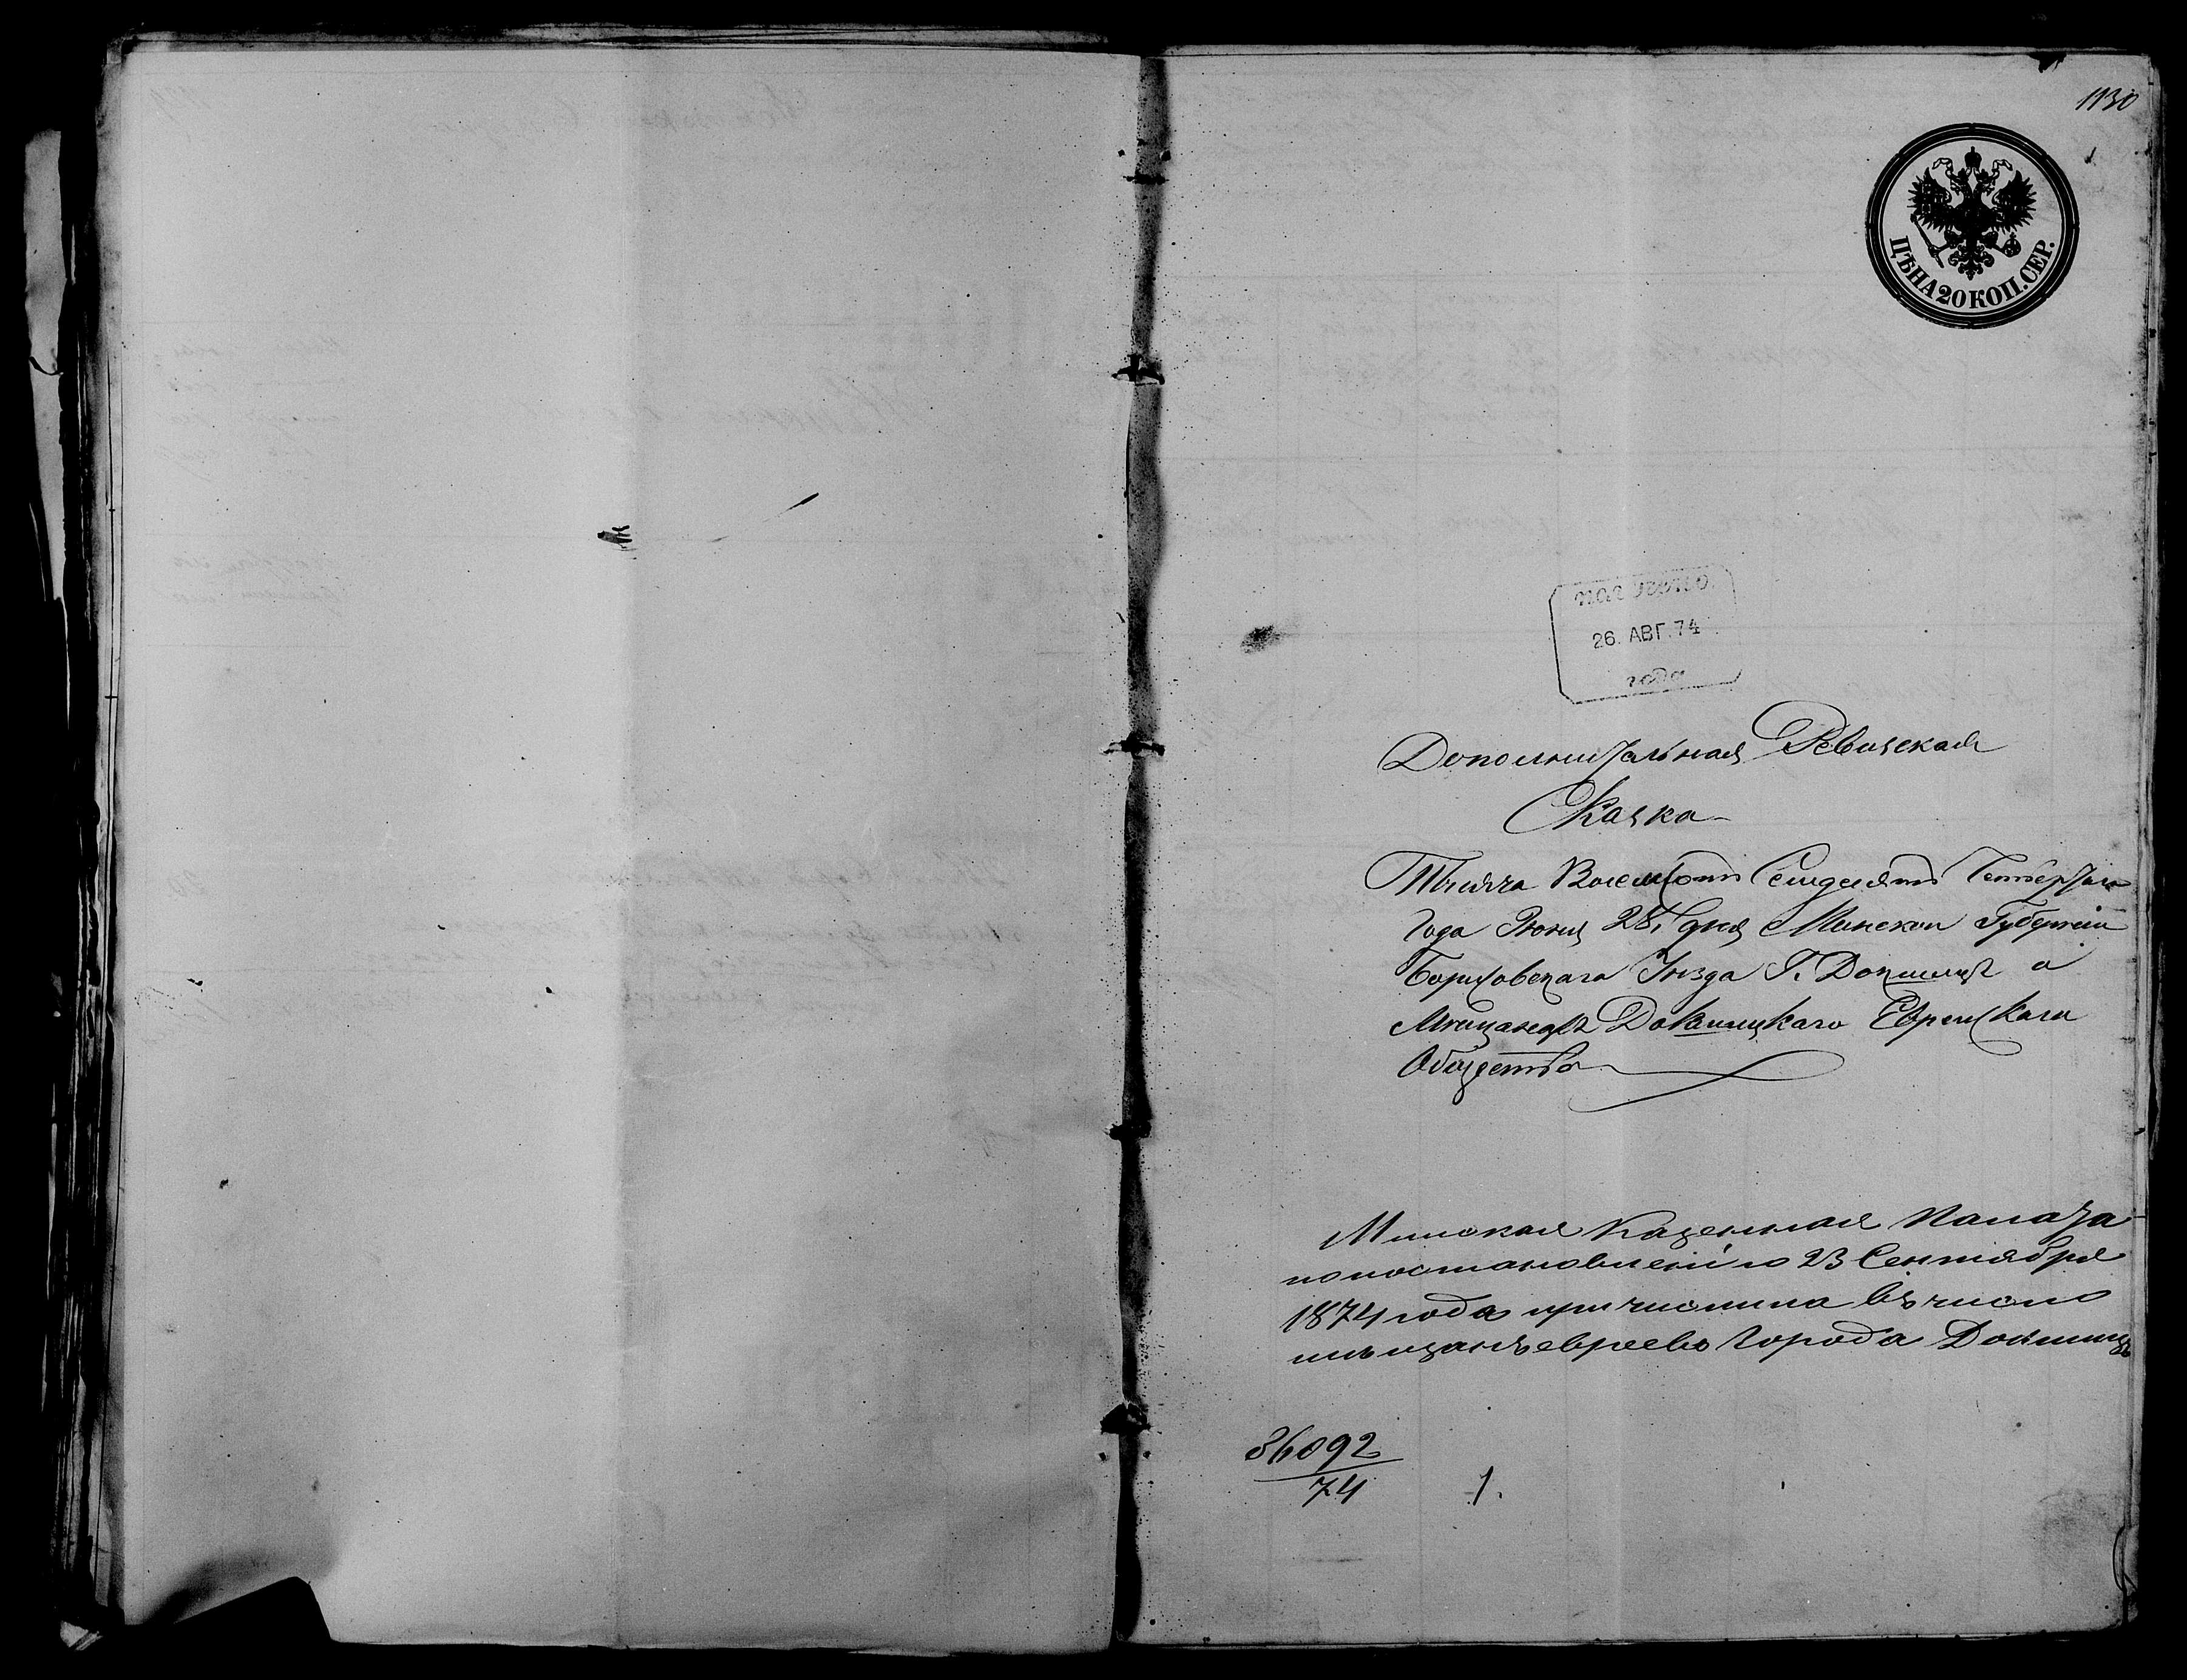 1130
ЦѢНА 20 КОП. СЕР.
получено
26. АВГ. 74
года
Дополнительная Ревизская
Сказка
Тысяча Восемьсотъ Семдесятъ Четвертаго
Года Июня 28 дня Минской Губернiи
Борисовскаго Уѣзда Г. Докшицъ о
Мѣщанахъ Докшицкаго Еврейскаго
Общества
Минская Казенная Палата
по постановленiю 23 Сентября
1874 года причислила въ число
мѣщанъ евреевъ города Докшицъ
36892
74
1.